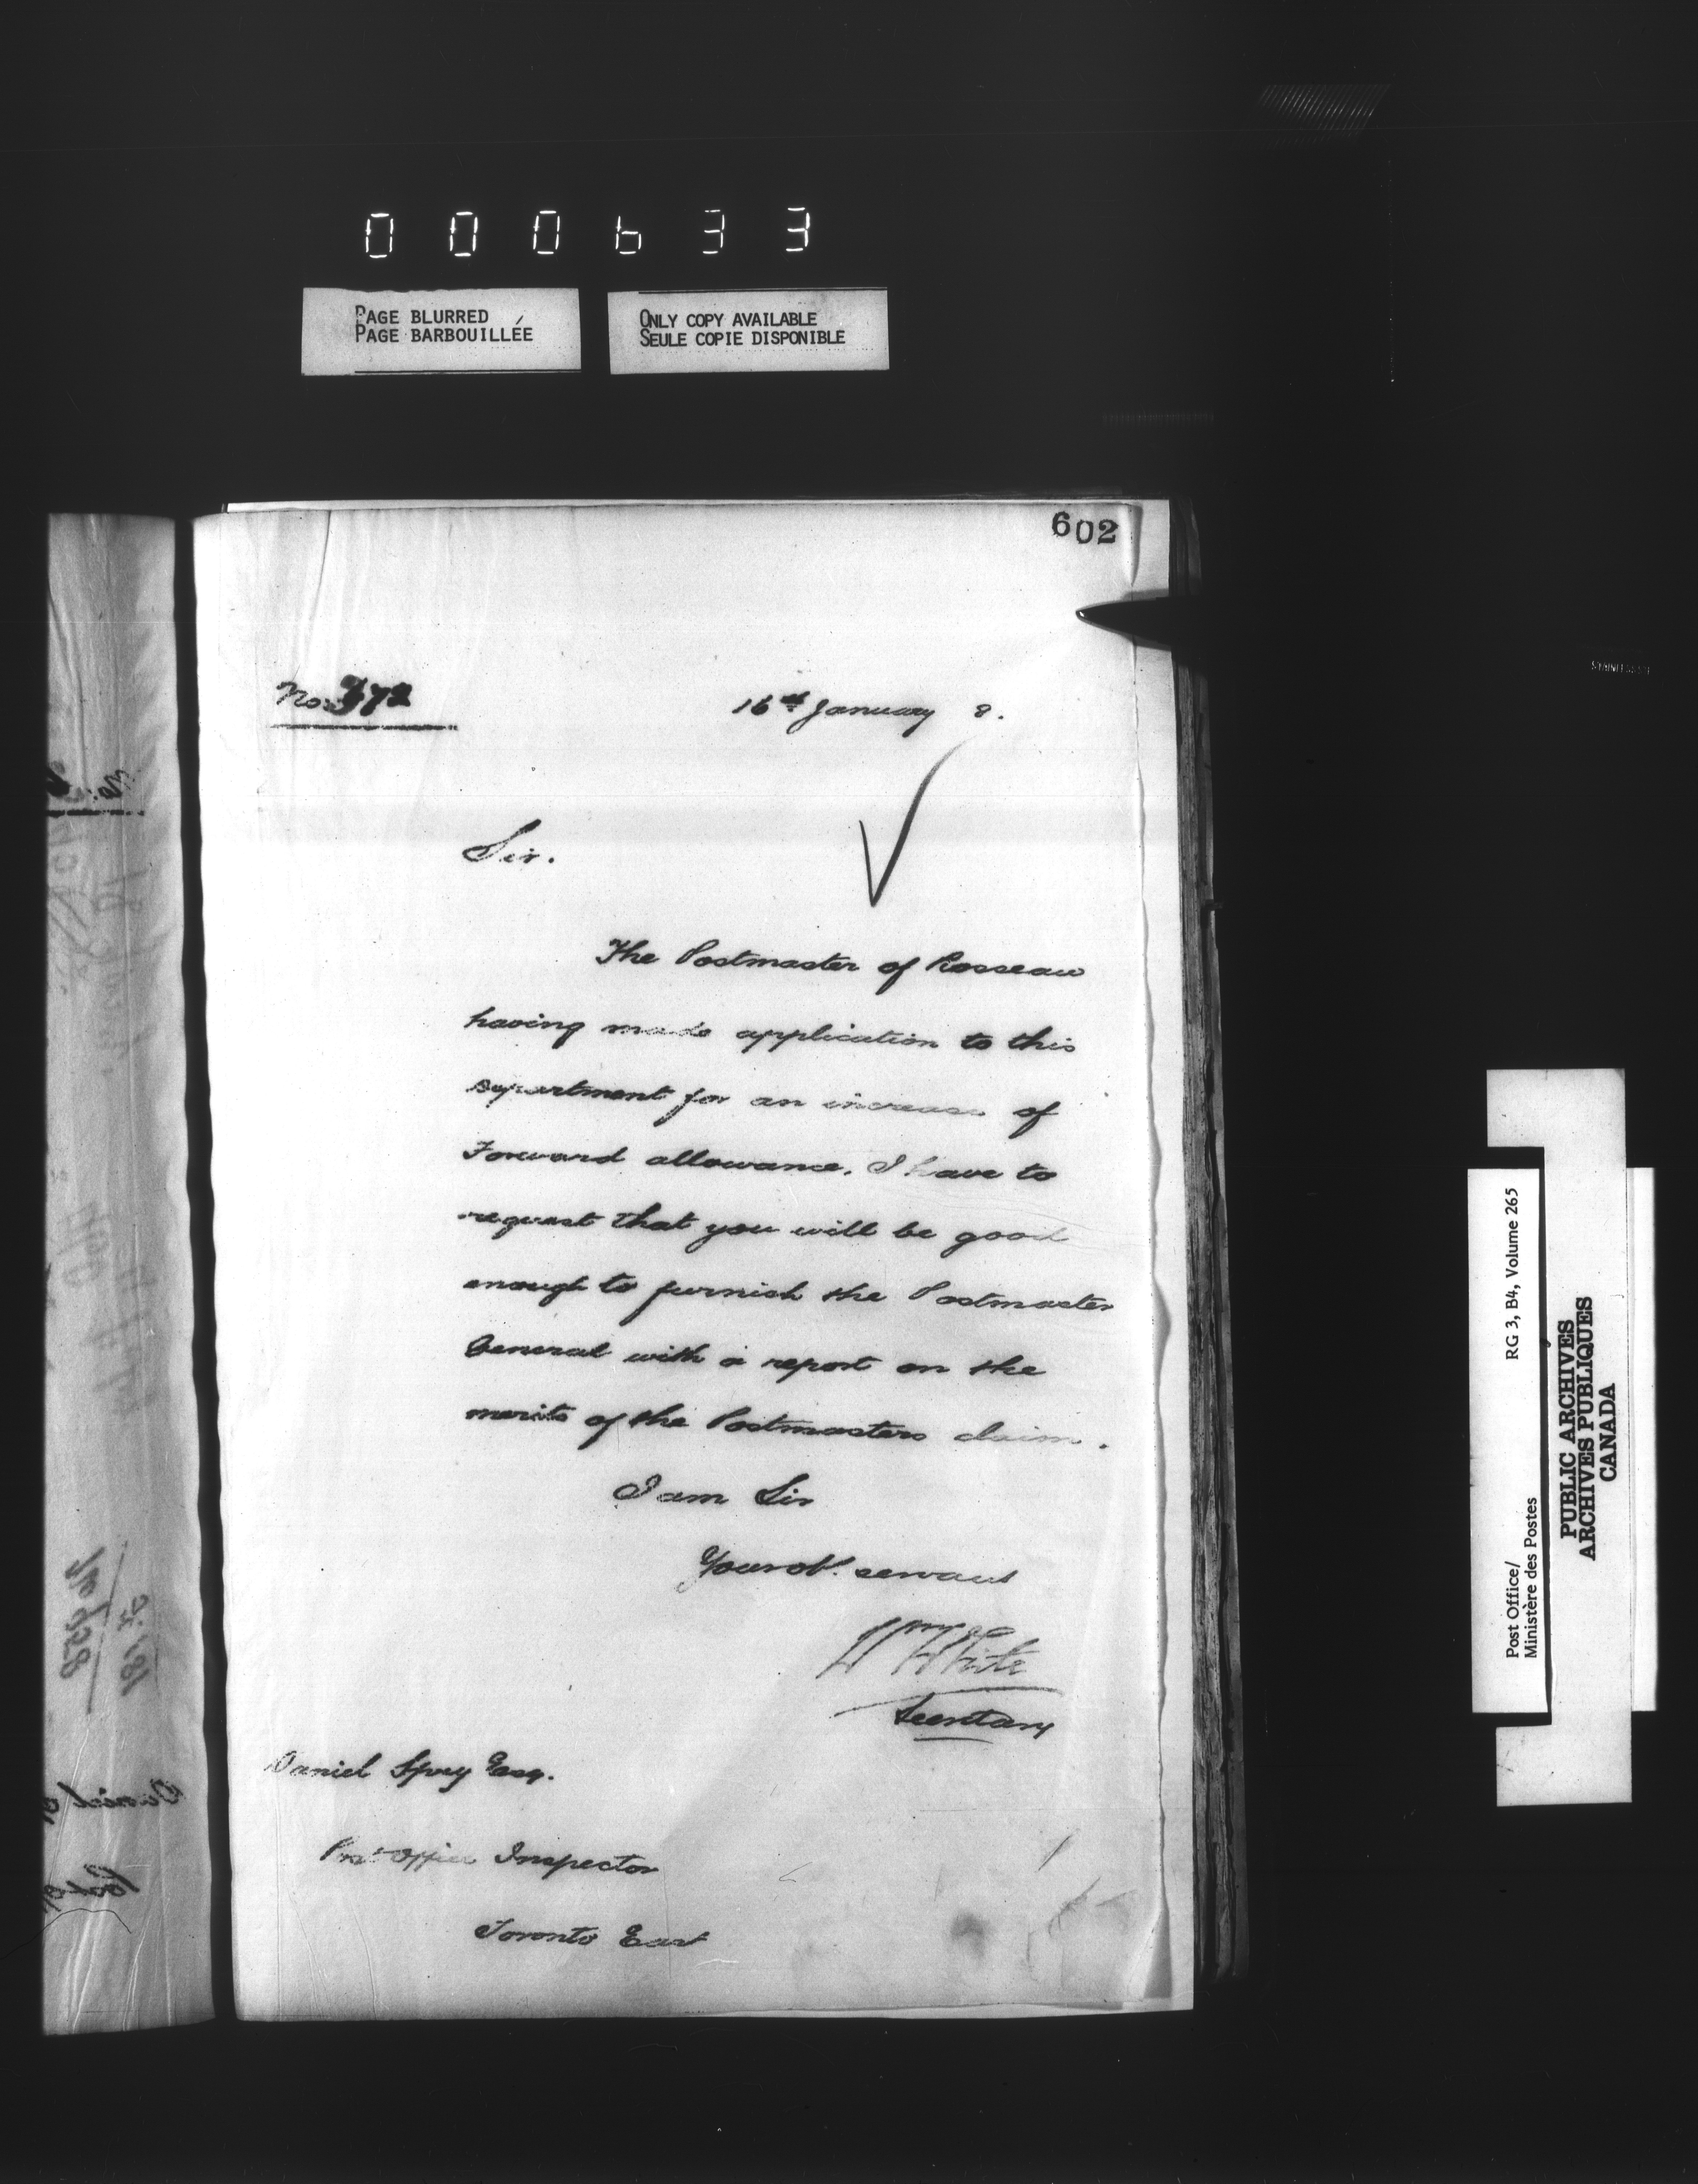 000633
PAGE BLURRED
PAGE BARBOUILLÉE
ONLY COPY AVAILABLE
SEULE COPIE DISPONIBLE
602
No: 372
16th January 8.
Sir.
The Postmaster of Rosseau
having made application to this
department for an increase of
Forward allowance. I have to
request that you will be good
enough to furnish the Postmaster
General with a report on the
merits of the Postmasters claim.
I am Sir
Your obt. servant
Wm White
Secretary
Daniel Spry Esq.
Post Office Inspector
Toronto East
Post Office/
Ministère des Postes
RG 3, B4, Volume 265
PUBLIC ARCHIVES
ARCHIVES PUBLIQUES
CANADA
STAINLESS